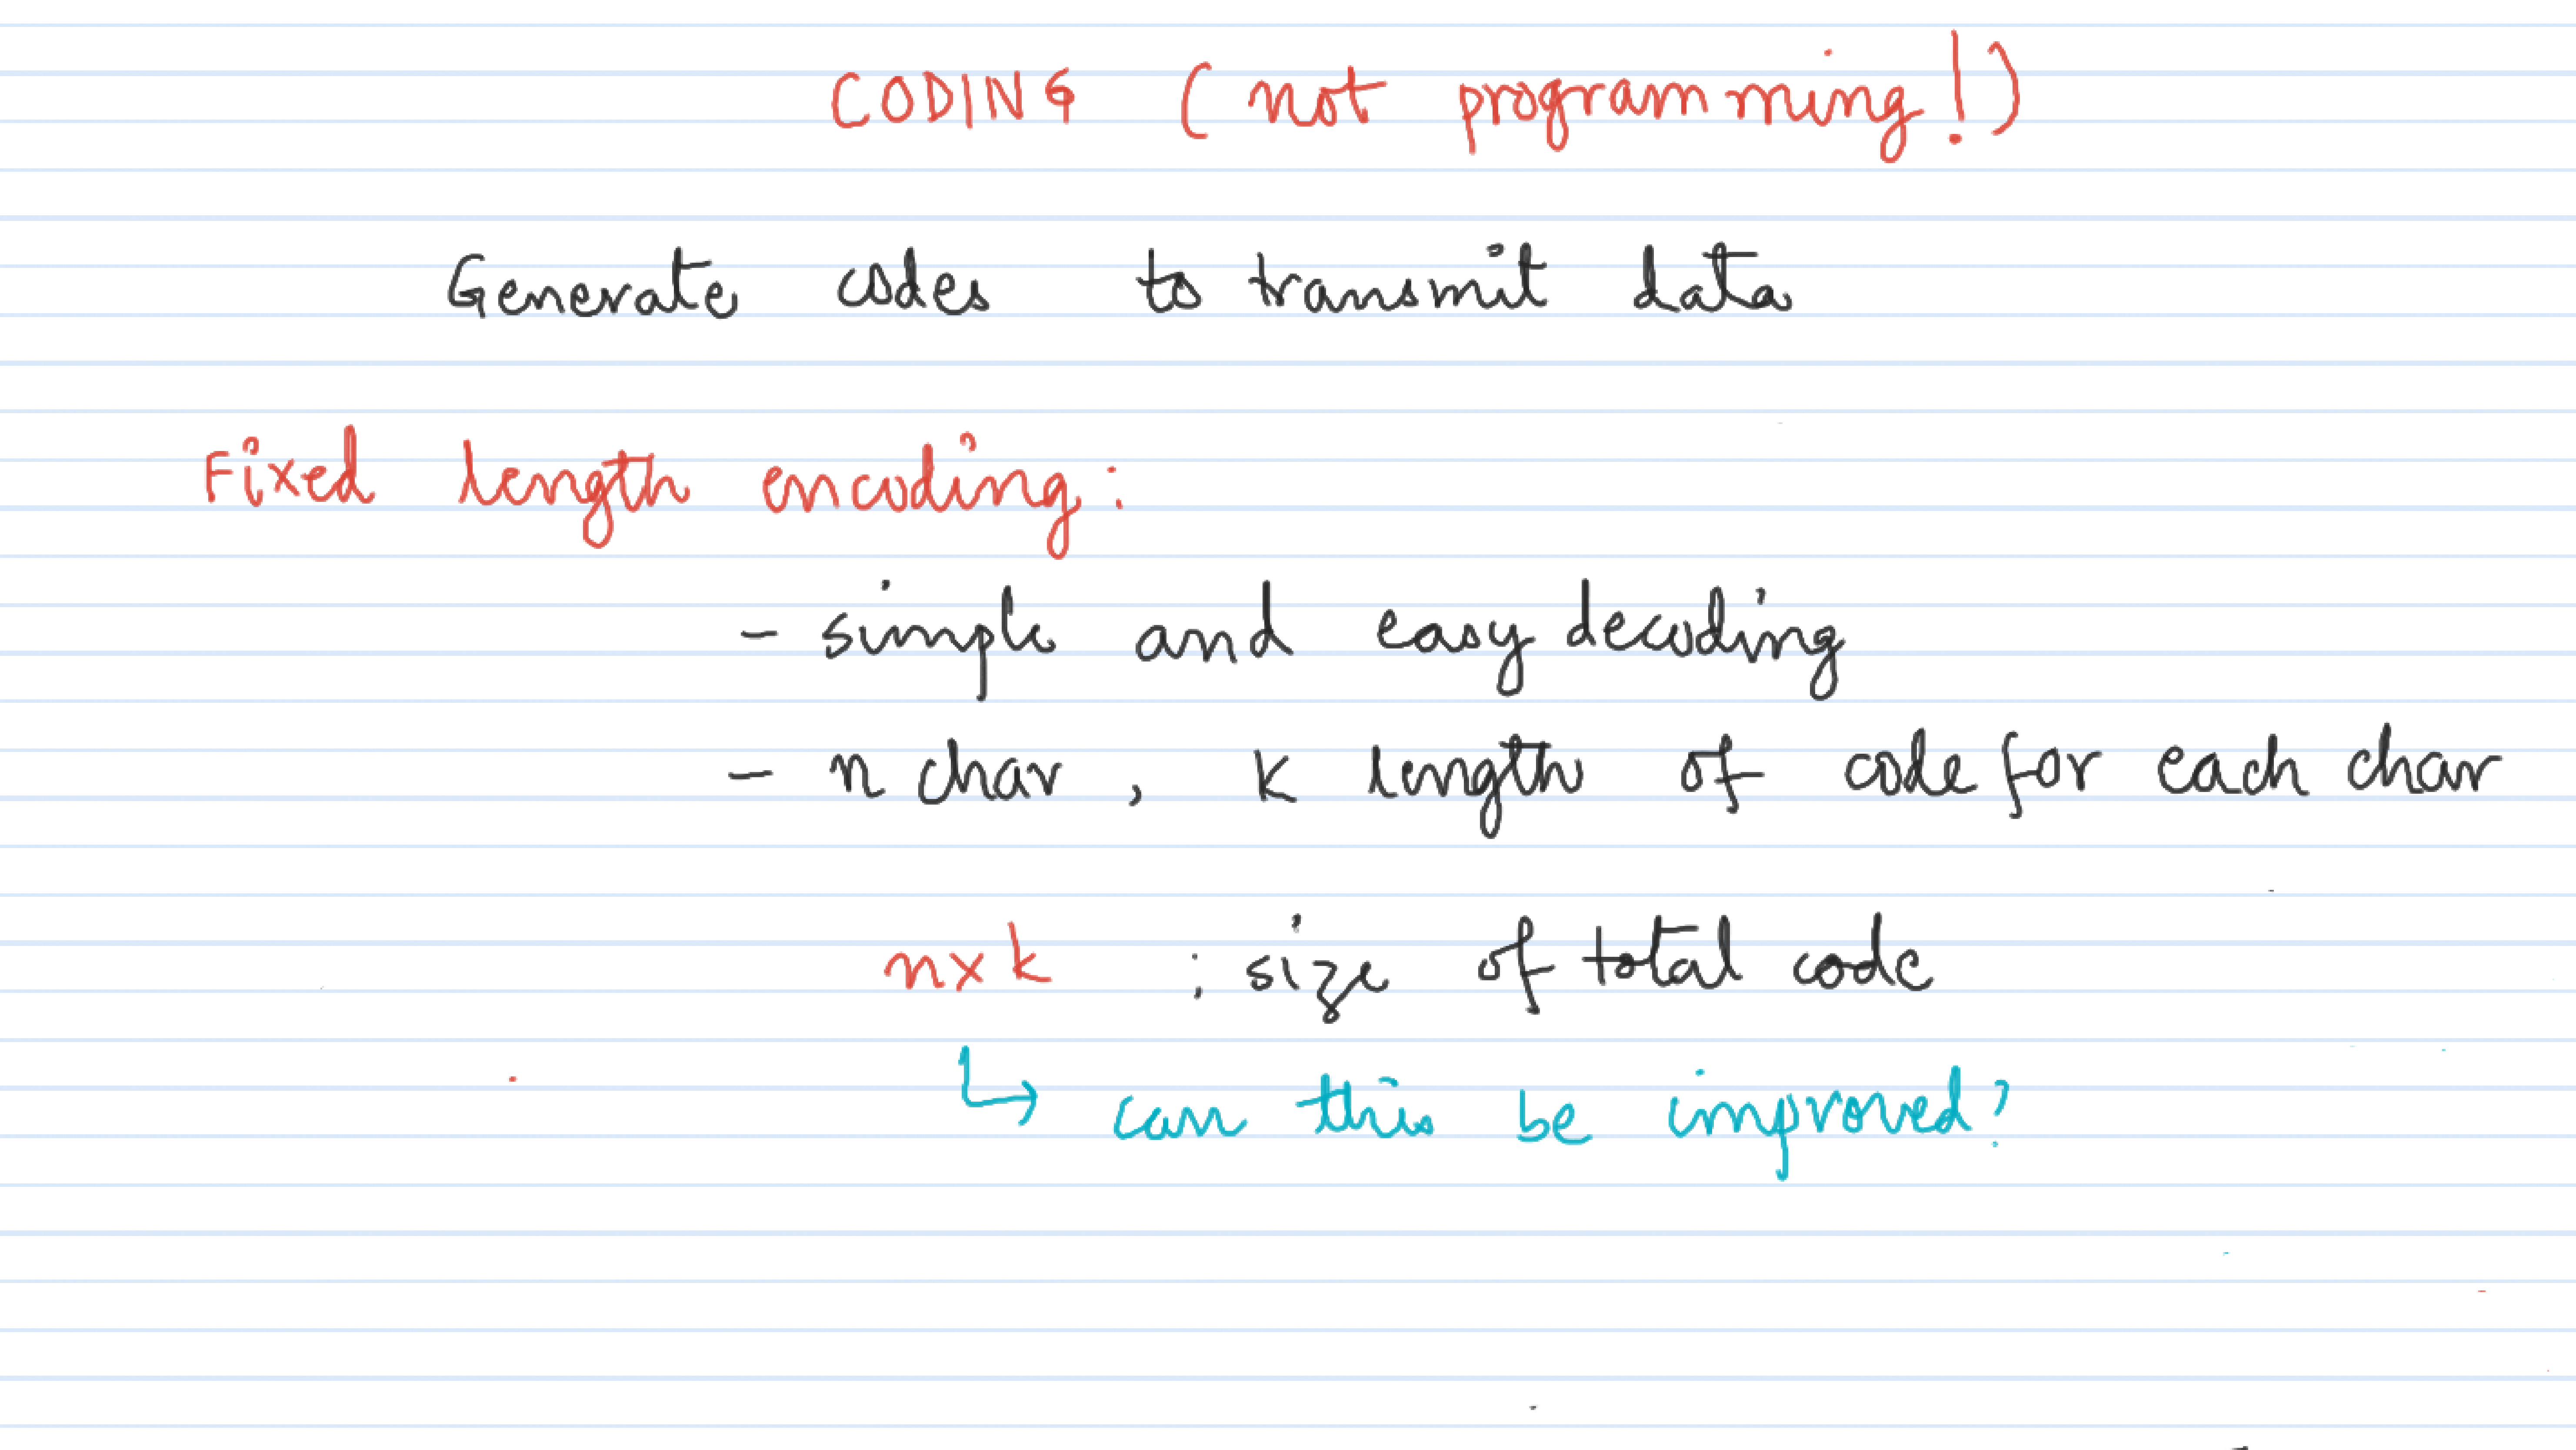 CODING (not programming!)
Generate codes to transmit data
Fixed length encoding:
- simple and easy decoding
- n char, k length of code for each char
n×k : size of total code
↳ can this be improved?